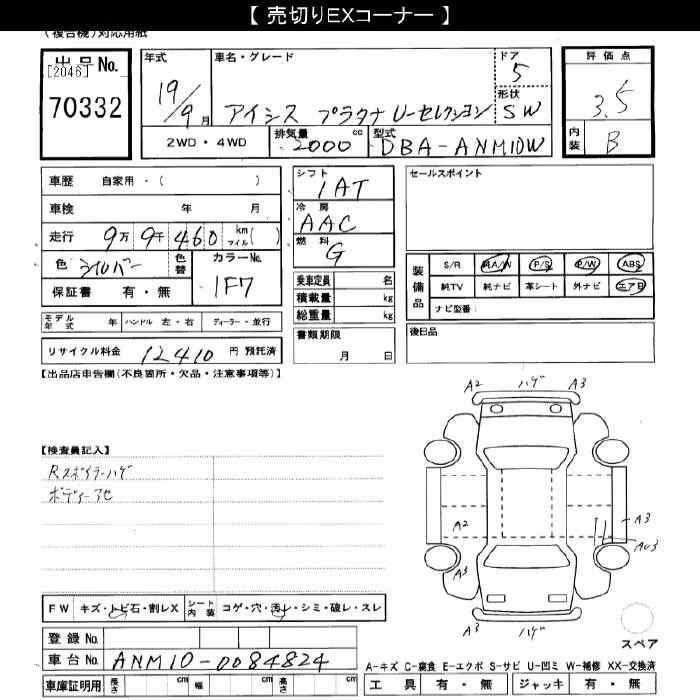 【 売切りEXコーナー 】
(複合機)対応用紙
出品No.
[2046]
70332
年式
19/9月
車名・グレード
アイシス プラタナ Uーセレクション
ドア
5
形状
SW
2WD・4WD
排気量
2000 cc
型式
DBA-ANM10W
評価点
3.5
内装
B
車歴 自家用・( )
車検 年 月
走行 9万9千460 km マイル( )
色 シルバー 色替
カラーNo.
1F7
保証書 有・無
モデル年式 年 ハンドル 左・右 ディーラー・並行
リサイクル料金 12410 円 預託済
シフト
1AT
冷房
AAC
燃料
G
乗車定員 名
積載量 kg
総重量 kg
書類期限
月 日
セールスポイント
装備品
S/R 純A/W P/S P/W ABS
純TV 純ナビ 革シート 外ナビ エアB
ナビ型番:
後日品
【出品店申告欄(不良箇所・欠品・注意事項等)】
【検査員記入】
Rスポイラーハゲ
ボディーアセ
A2 ハゲ A3
A2
A3
A3
A3 ハゲ
FW キズ・トビ石・割レX シート内装 コゲ・穴・汚レ・シミ・破レ・スレ
登録No.
車台No. ANM10-0084824
車庫証明用 長さ cm 幅 cm 高さ cm
スペア
A-キズ C-腐食 E-エクボ S-サビ U-凹ミ W-補修 XX-交換済
工具 有・無 ジャッキ 有・無